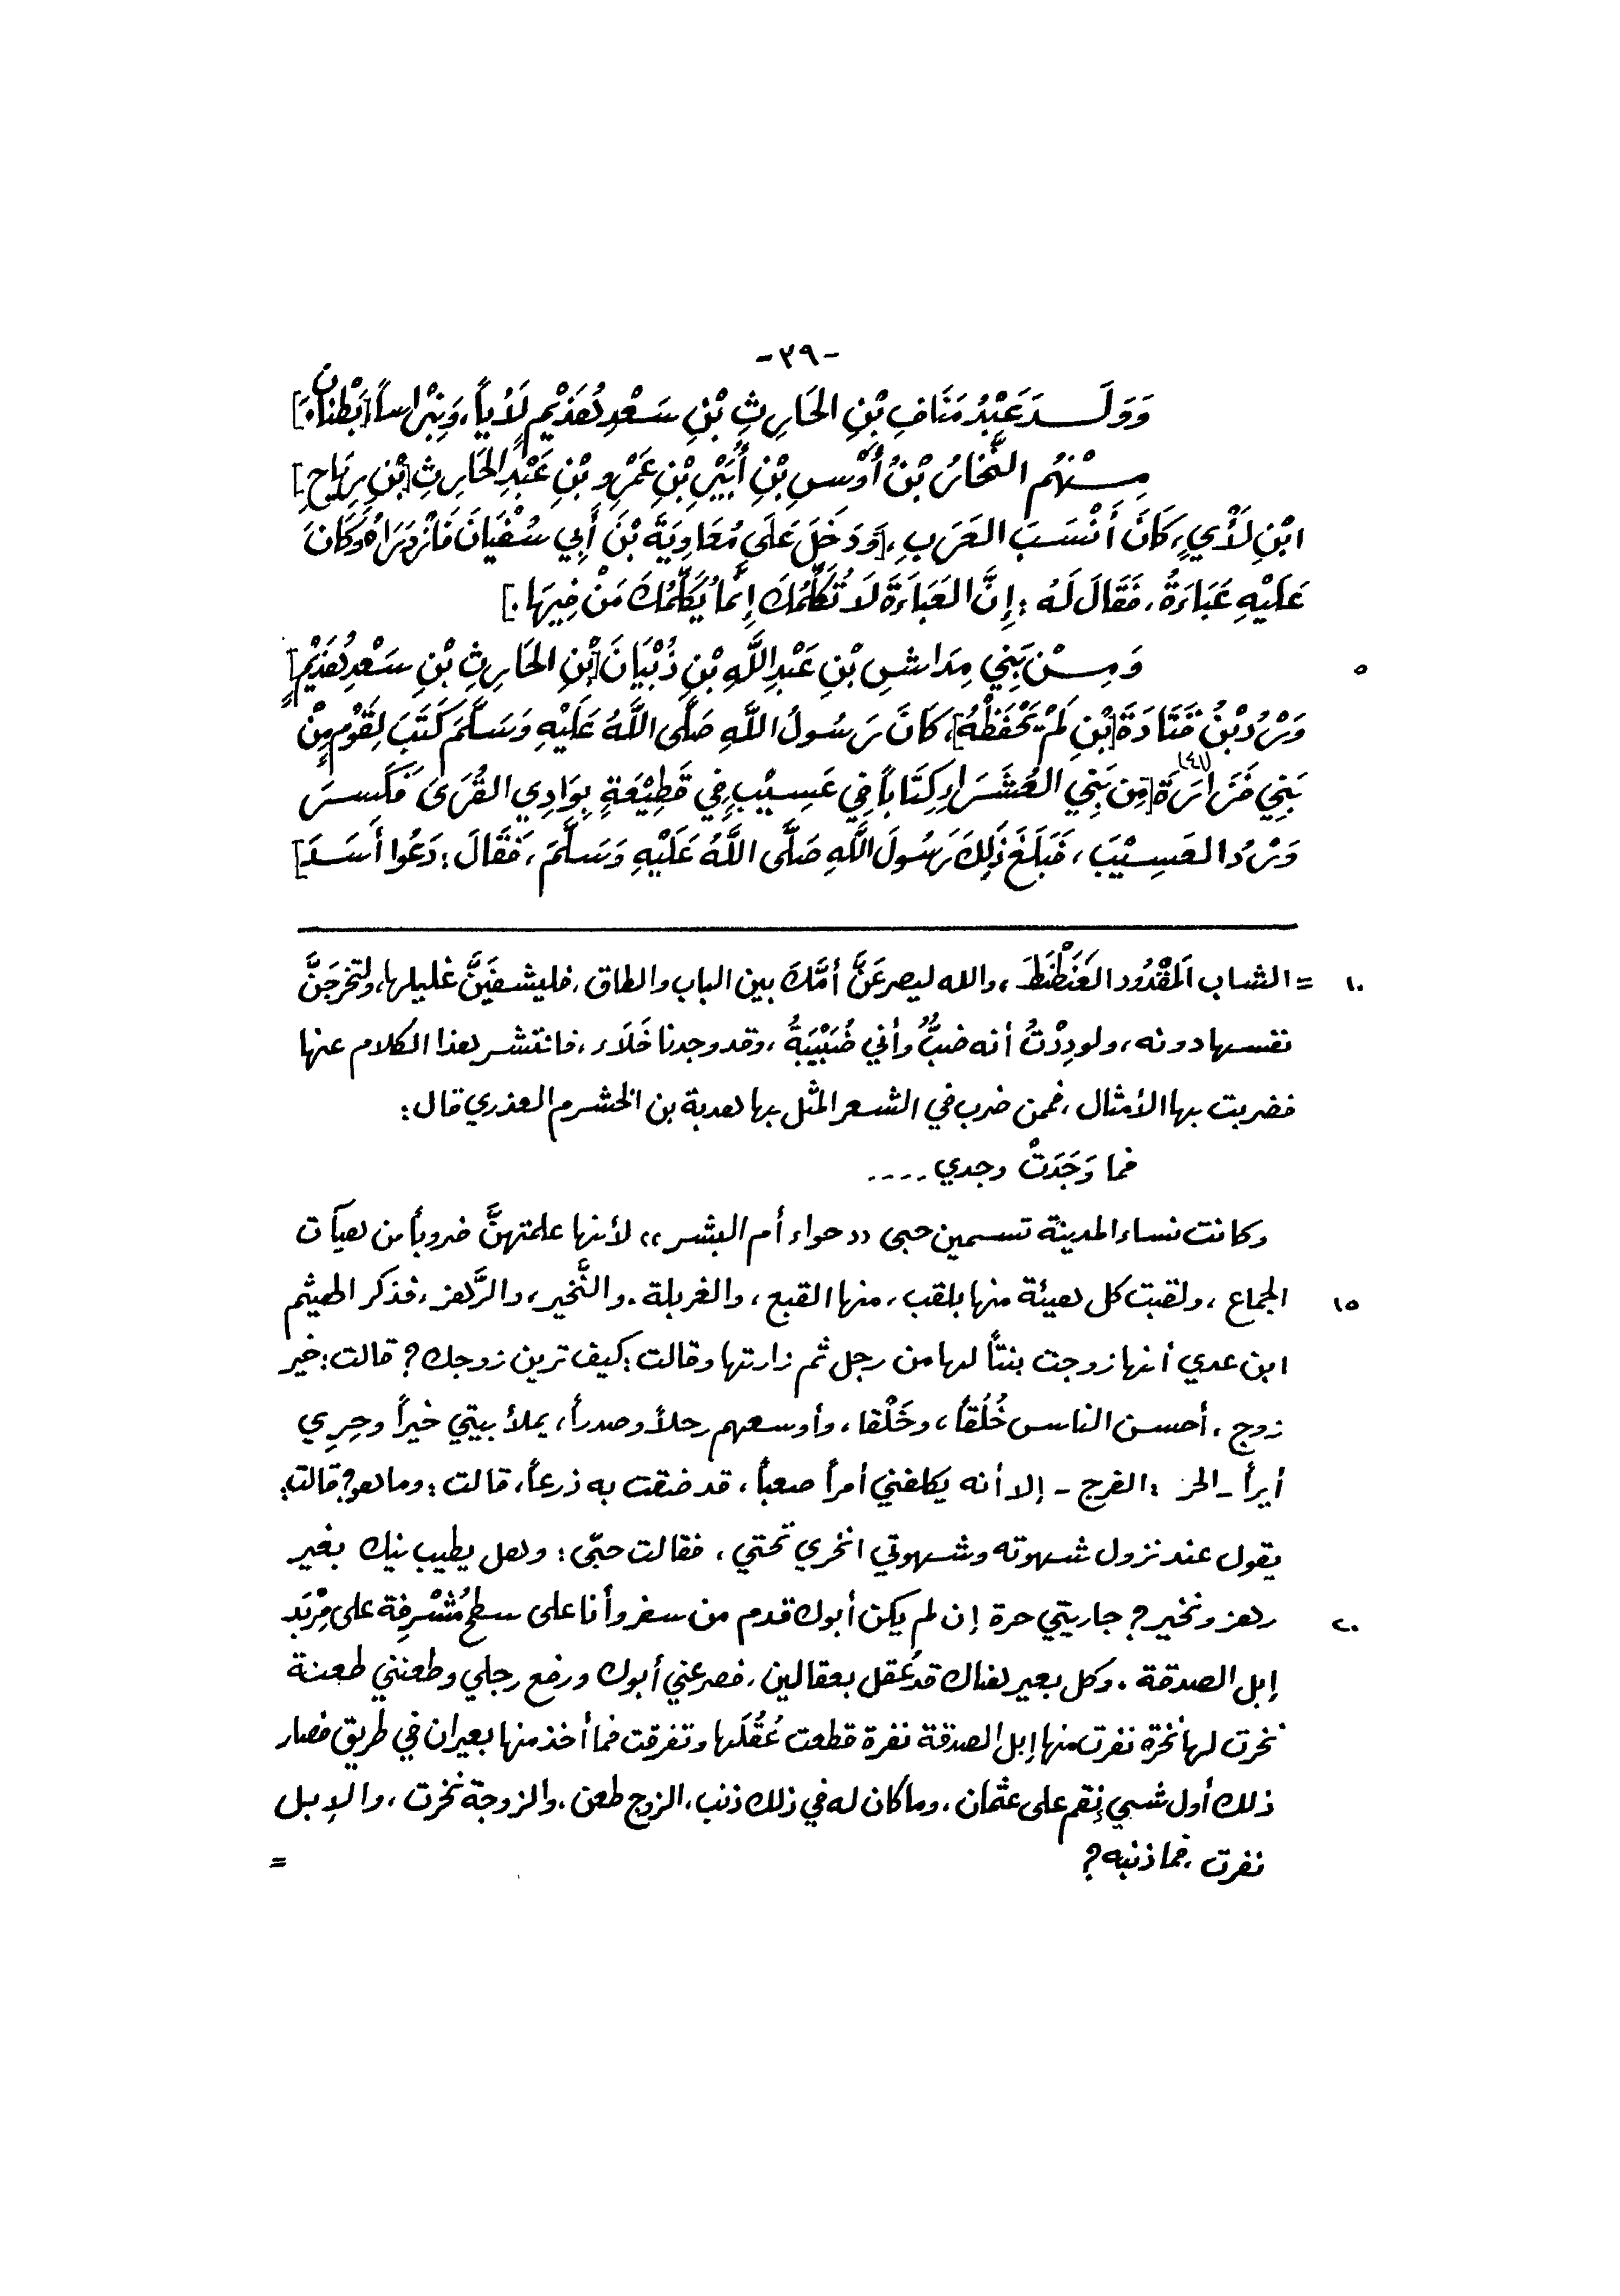 -٣٩-
وَوَلَـــدَ عَبْدُ مَنَافِ بْنِ الحَارِثِ بْنِ سَعْدِ هُذَيْمٍ لَأْياً، وَنِبْراساً [بَطْنَانِ.]
مِـــنْهُم النَّخَّارُ بْنُ أَوْسِ بْنِ أُبَيْرِ بْنِ عَمْرِو بْنِ عَبْدِ الحَارِثِ [بْنِ رِيَاحِ]
ابْنِ لَأْيٍ، كَانَ أَنْسَبَ العَرَبِ، [وَدَخَلَ عَلَى مُعَاوِيَةَ بْنَ أَبِي سُفْيَانَ فَازْدَرَاهُ وَكَانَ
عَلَيْهِ عَبَاءَةٌ، فَقَالَ لَهُ: إِنَّ العَبَاءَةَ لَا تُكَلِّمُكَ إِنَّمَا يُكَلِّمُكَ مَنْ فِيهَا.]
٥ وَمِـــنْ بَنِي مِدَاشِ بْنِ عَبْدِ اللَّهِ بْنِ ذُبْيَانَ [بْنِ الحَارِثِ بْنِ سَعْدِ هُذَيْمٍ]
وَرْدُ بْنُ قَتَادَةَ [بْنِ لَمْ يَحْفَظْهُ]، كَانَ رَسُولُ اللَّهِ صَلَّى اللَّهُ عَلَيْهِ وَسَلَّمَ كَتَبَ لِقَوْمٍ مِنْ
بَنِي فَزَارَةَ (٤١) [مِن بَنِي العُشَرَاءِ كِتَاباً فِي عَسِيْبٍ فِي قَطِيْعَةٍ بِوَادِي القُرَى فَكَسِرَ
وَرْدُ العَسِيْبَ، فَبَلَغَ ذَلِكَ رَسُولَ اللَّهِ صَلَّى اللَّهُ عَلَيْهِ وَسَلَّمَ، فَقَالَ: دَعُوا أَسَدَ]
١٠ = الشاب المَقْدُود العَنَطْنَطَ، والله ليصرعَنَّ أمَّكَ بين الباب والطاق، فليشفيَنَّ غليلها، ولتخرجَنَّ
نفسها دونه، ولودِدْتُ أنه ضبٌّ وأني ضُبَيْبَةٌ، وقد وجدنا خَلَاء، فانتشر هذا الكلام عنها
فضربت بها الأمثال، فممن ضرب في الشعر المثل بها هدبة بن الخشرم العذري قال:
فما وَجَدَتْ وجدي ....
وكانت نساء المدينة تسمين حبى «حواء أم البشر» لأنها علمتهنَّ ضروباً من هيآت
١٥ الجماع، ولقبت كل هيئة منها بلقب، منها القبع، والغربلة. والنَّخير، والرَّهز، فذكر الهيثم
ابن عدي أنها زوجت بنتاً لها من رجل ثم زارتها وقالت: كيف ترين زوجك؟ قالت: خير
زوج، أحسن الناس خُلُقاً، وخَلْقا، وأوسعهم رحلاً وصدراً، يملأ بيتي خيراً وحِرِي
أيراً - الحر: الفرج - إلا أنه يكلفني أمراً صعباً، قد ضقت به ذرعاً، قالت: وما هو؟ قالت:
يقول عند نزول شهوته وشهوتي انخري تحتي، فقالت حبّى: وهل يطيب نيك بغير
٢٠ رهز ونخير؟ جاريتي حرة إن لم يكن أبوك قدم من سفر وأنا على سطح مُشْرِفة على مِرْبَد
إبل الصدقة، وكل بعير هناك قد عُقل بعقالين، فصرعني أبوك ورفع رجلي وطعنني طعنة
نخرت لها نخرة نفرت منها إبل الصدقة نفرة قطعت عُقُلَها وتفرقت فما أخذ منها بعيران في طريق فصار
ذلك أول شيء نِقم على عثمان، وما كان له في ذلك ذنب، الزوج طعن، والزوجة نخرت، والإبل
نفرت، فما ذنبه؟ =